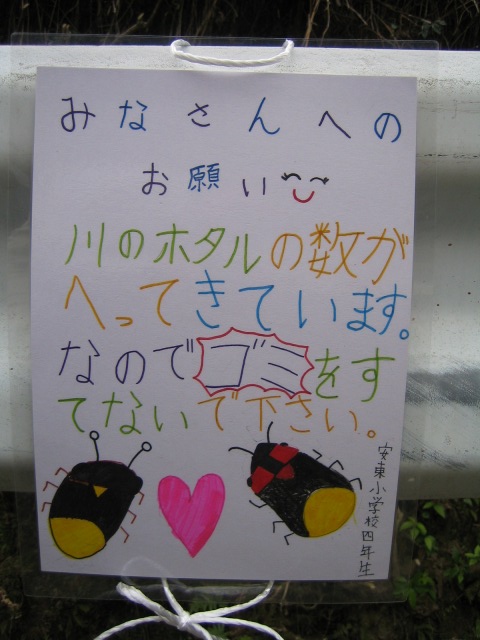 みなさんへの
お願い
川のホタルの数が
へってきています。
なのでゴミをす
てないで下さい。
安東小学校四年生